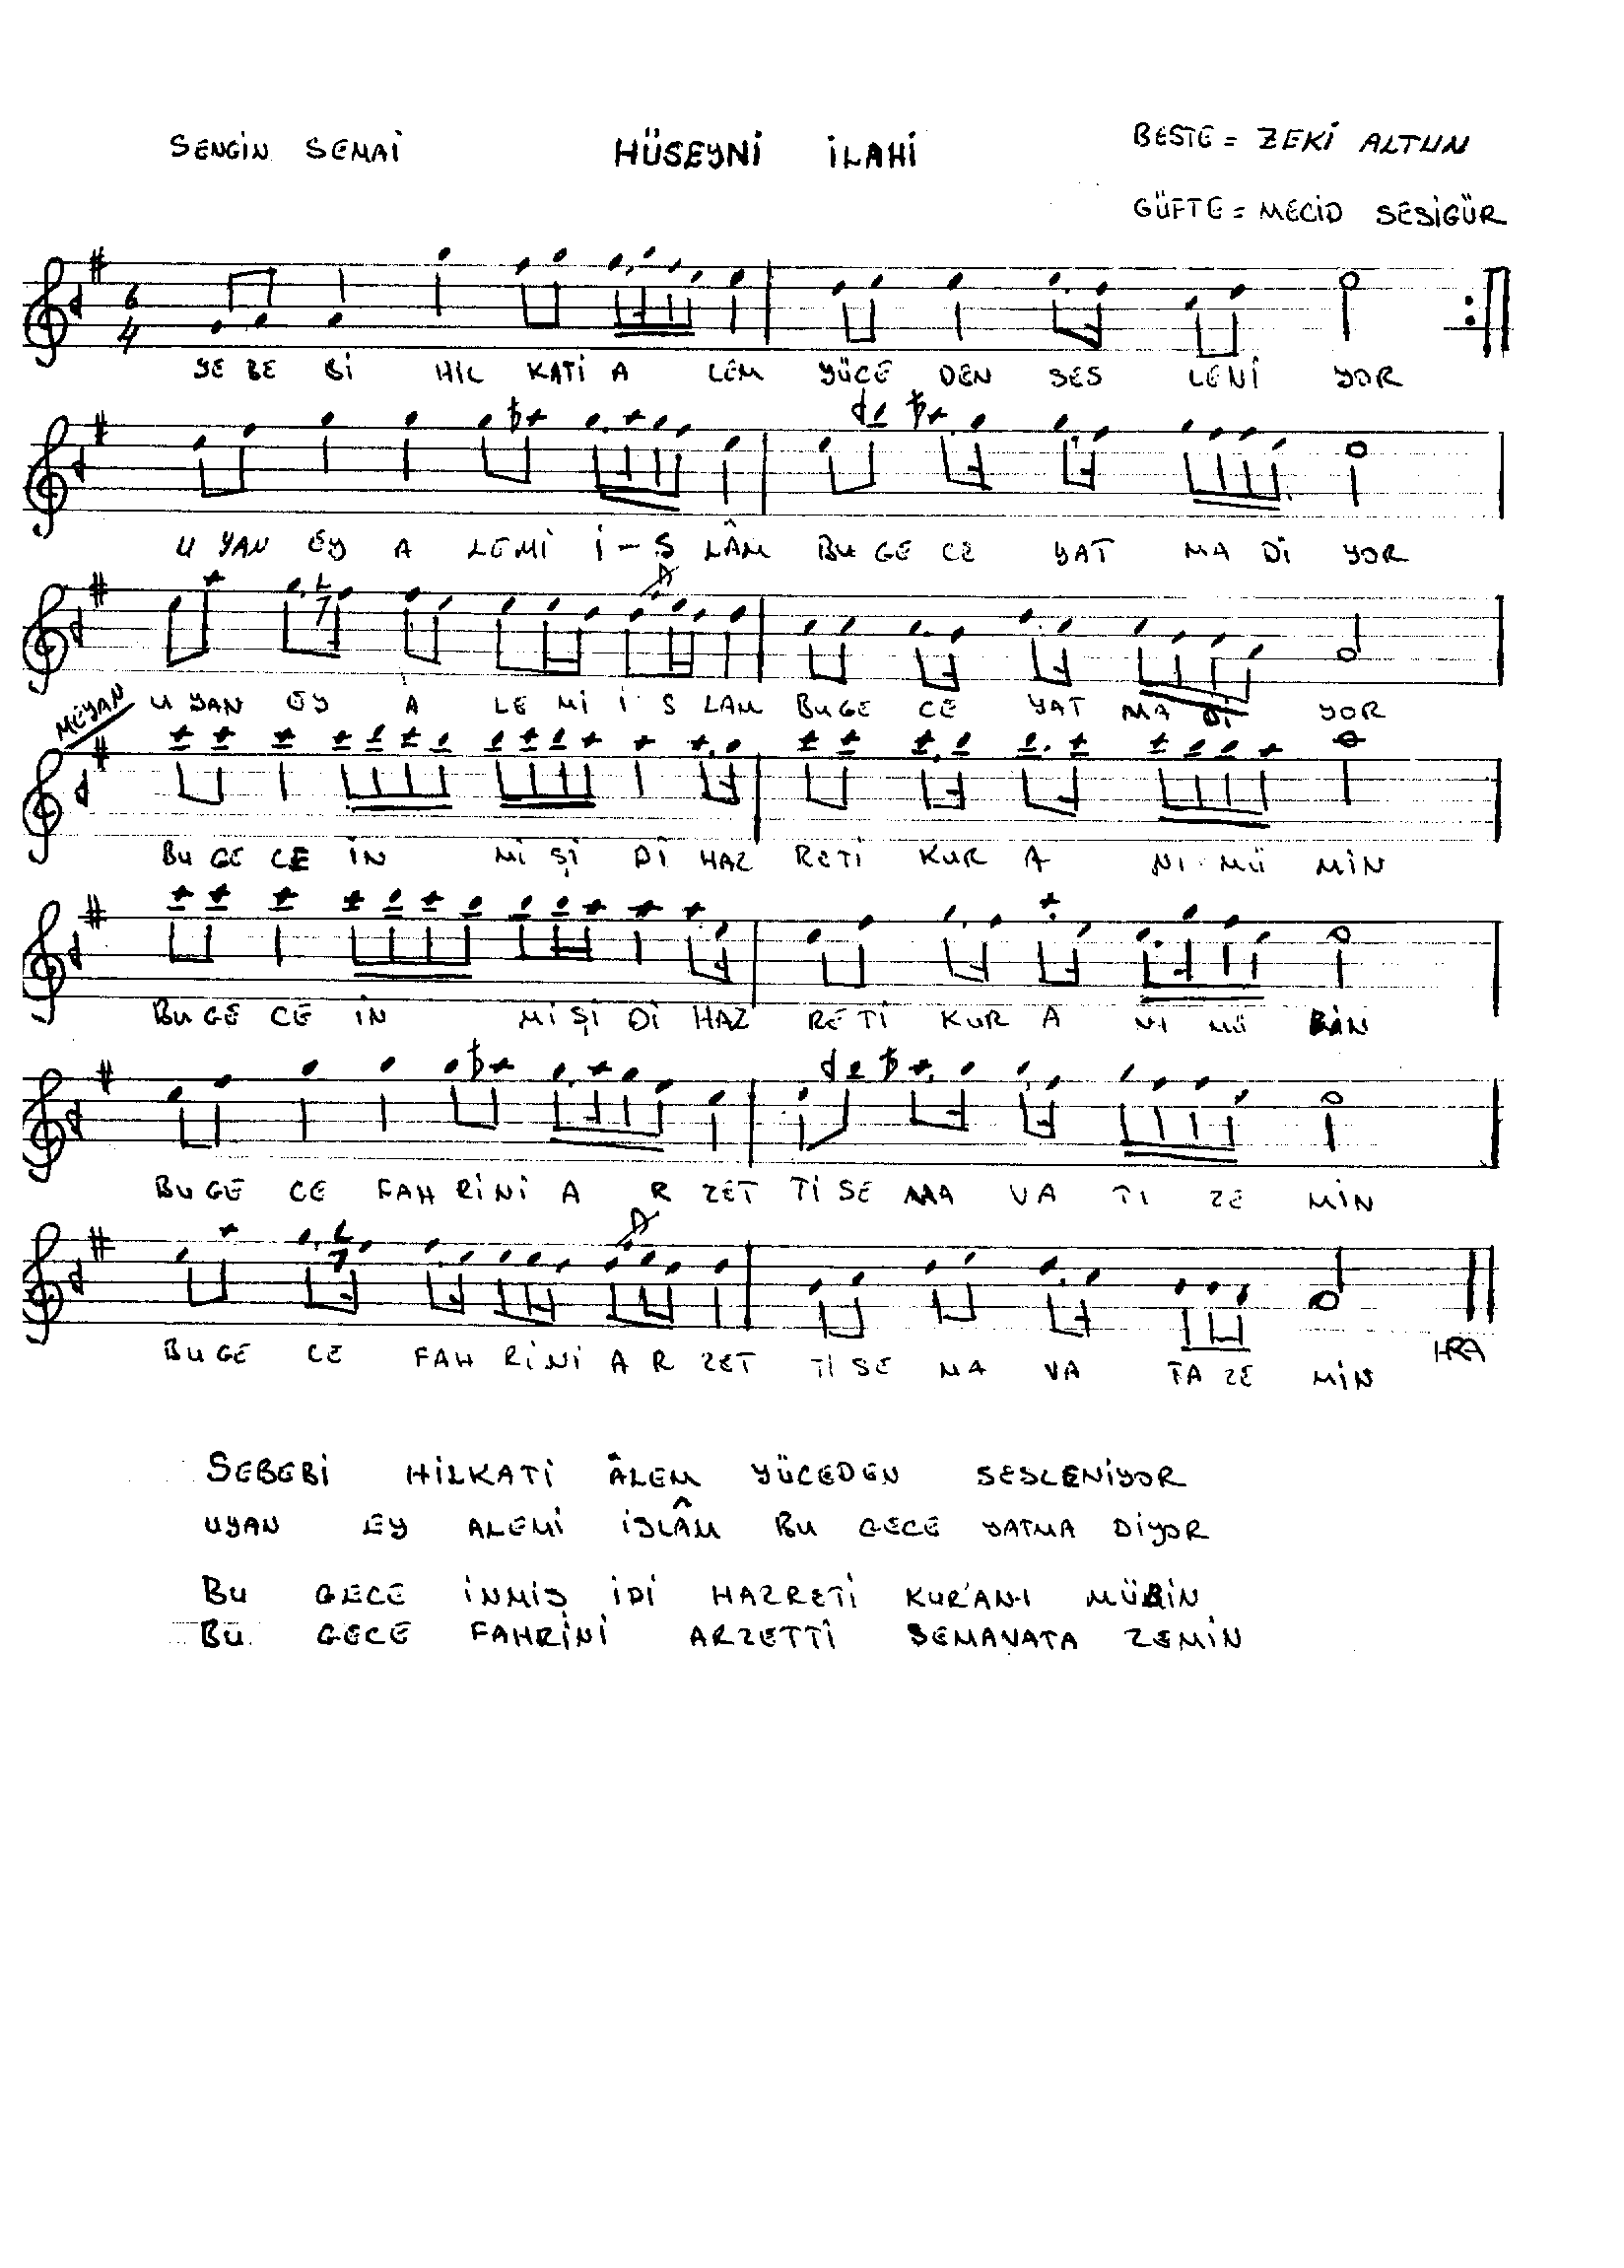 SENGİN SEMAİ HÜSEYNİ İLAHİ BESTE = ZEKİ ALTUN
GÜFTE = MECİD SESİGÜR
6
4
YE BE Bİ HİL KATİ A LEM YÜCE DEN SES LENİ YOR
U YAN EY A LEMİ İ-S LÂM BU GE CE YAT MA Dİ YOR
U YAN EY A LE Mİ İ S LAM BUGE CE YAT MA Dİ YOR
MEYAN
BU GE CE İN Mİ Şİ Dİ HAZ RETİ KUR A NI MÜ MİN
BU GE CE İN Mİ Şİ Dİ HAZ RE Tİ KUR A NI MÜ BİN
BU GE CE FAH RİNİ A R ZET Tİ SE MA VA TI ZE MİN
BU GE CE FAH RİNİ A R ZET Tİ SE MA VA TA ZE MİN
HRA
SEBEBİ HİLKATİ ÂLEM YÜCEDEN SESLENİYOR
UYAN EY ALEMİ İSLÂM BU GECE YATMA DİYOR
BU GECE İNMİŞ İDİ HAZRETİ KUR'AN-I MÜBİN
BU GECE FAHRİNİ ARZETTİ SEMAVATA ZEMİN